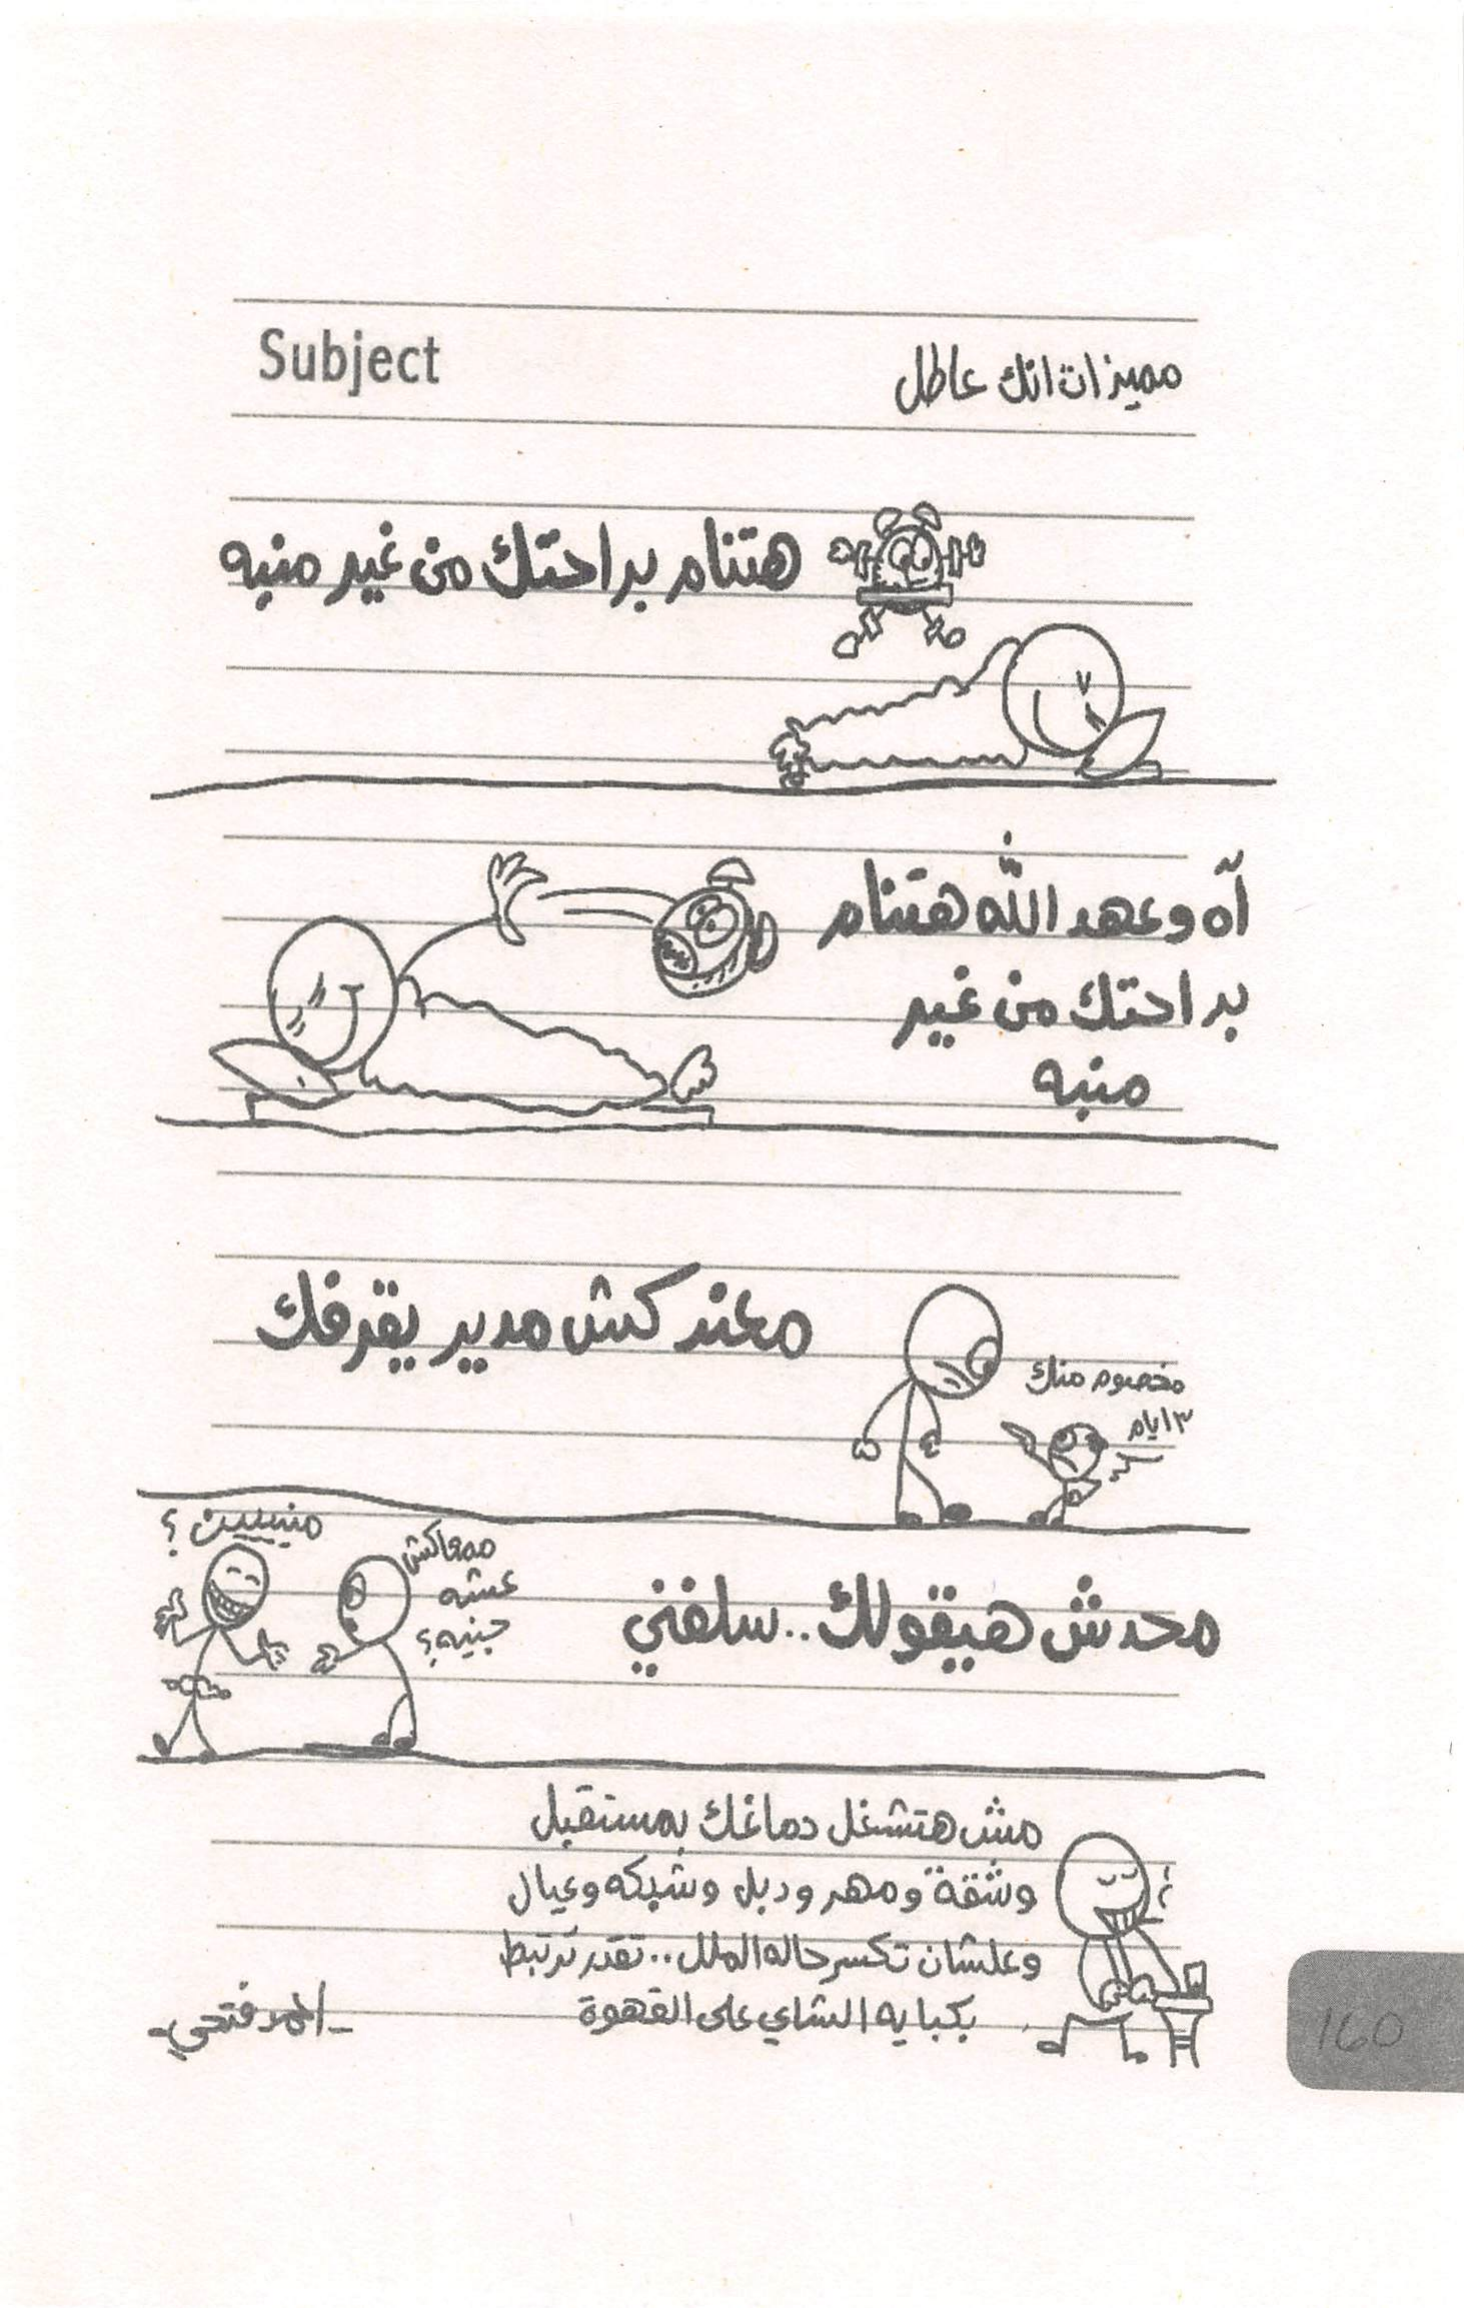 Subject
مميزات انك عاطل
هتنام براحتك من غير منبه
آه وعهد الله هتنام
براحتك من غير
منبه
معندكش مدير يقرفك
مخصوم منك
٣ ايام
محدش هيقولك..سلفني
معاكش
عشه
جنيه؟
منيييين؟
مش هتشغل دماغك بمستقبل
وشقة ومهر ودبل وشبكه وعيال
وعلشان تكسر حاله الملل..تقدر ترتبط
بكبايه الشاي على القهوة
-احمد فتحي-
160